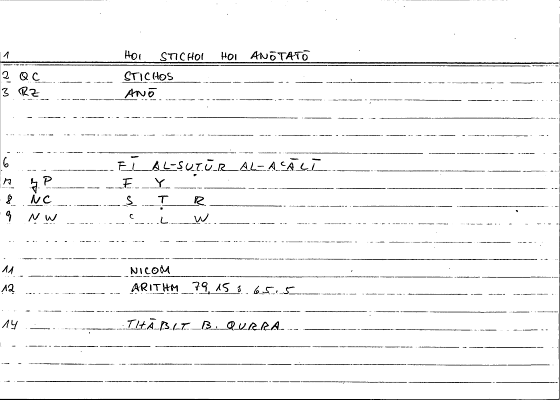 1 HOI STICHOI HOI ANŌTATŌ
2 QC STICHOS
3 RZ ANŌ
6 FĪ AL-SUṬŪR AL-AʿĀLĪ
7 yP F Y
8 NC S Ṭ R
9 NW ʿ L W
11 NICOM
12 ARITHM 79,15 : 65.5
14 THĀBIT B. QURRA